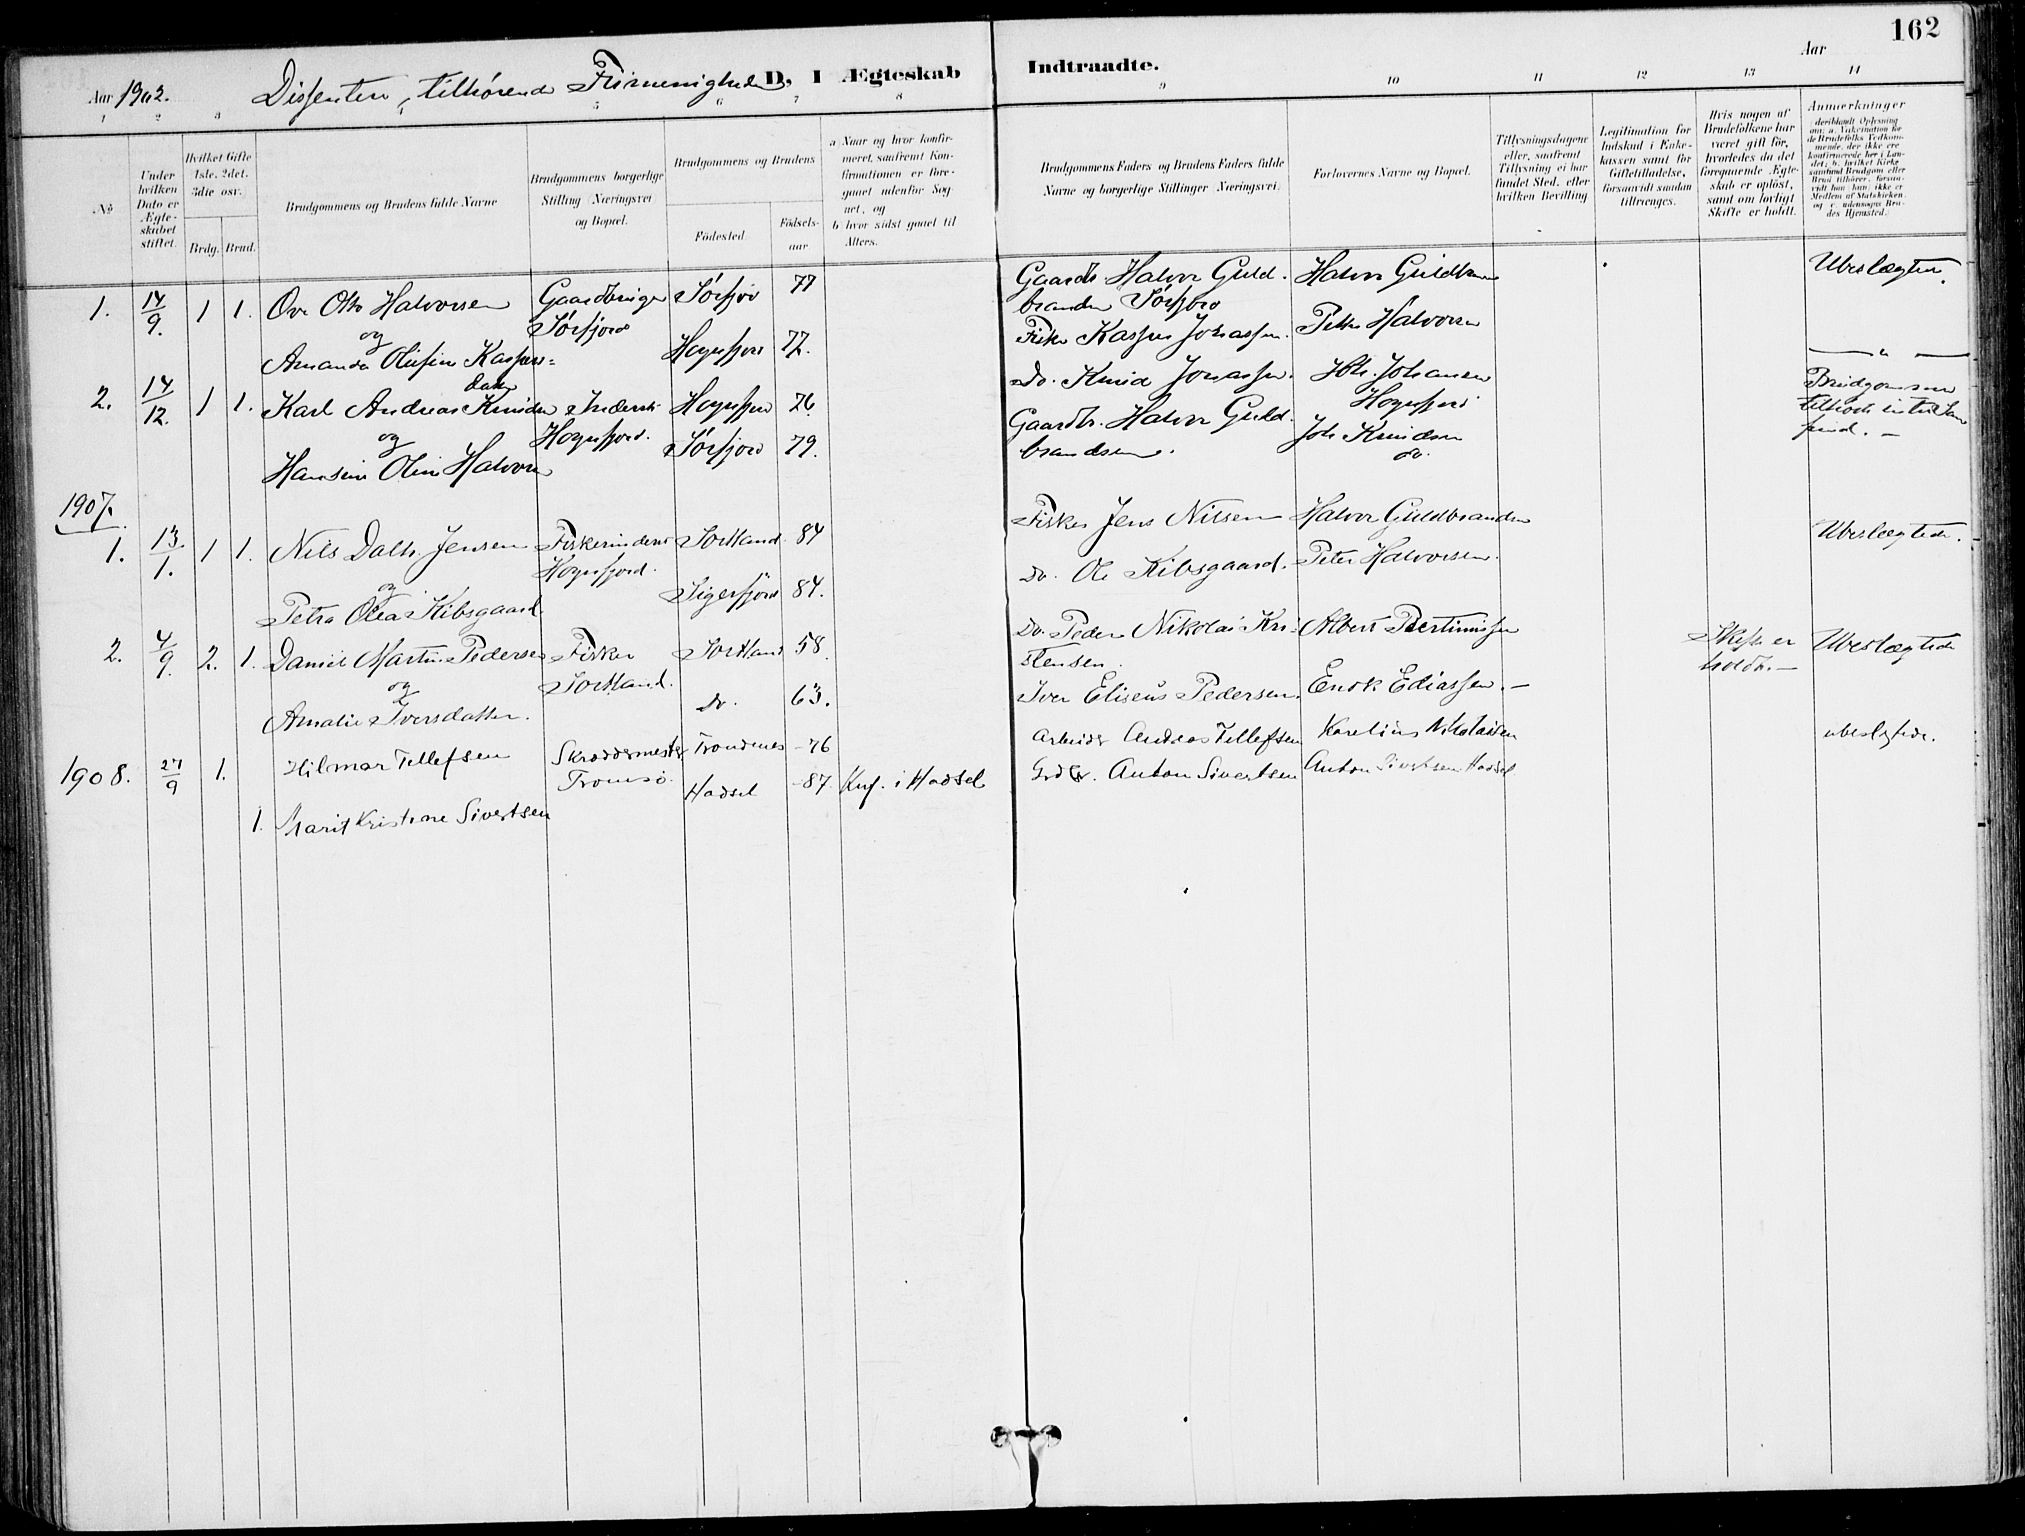 162
Aar 1902. Dissentere, tilhørende Frimenigheden D, I Ægteskab Indtraadte. Aar
1 2 3 4 5 6 7 8 9 10 11 12 13 14
No
Under hvilken Dato er Ægteskabet stiftet.
Hvilket Gifte 1ste, 2det, 3die osv.
Brdg. Brud.
Brudgommens og Brudens fulde Navne
Brudgommens borgerlige Stilling (Næringsvei og Bopæl.
Brudgommens og Brudens
Födested. Födsels-aar
a Naar og hvor konfirmeret, saafremt Konfirmationen er foregaaet udenfor Sognet, og
b hvor sidst gaaet til Alters.
Brudgommens Faders og Brudens Faders fulde Navne og borgerlige Stillinger Næringsvei.
Forlovernes Navne og Bopæl.
Tillysningsdagene eller, saafremt Tillysning ei har fundet Sted, efter hvilken Bevilling
Legitimation for Indskud i Enkekassen samt for Giftetilladelse, forsaavidt saadan tiltrænges.
Hvis nogen af Brudefolkene har været gift før, hvorledes da det foregaaende Ægteskab er oplöst, samt om lovligt Skifte er holdt.
Anmerkninger deriblandt Oplysning om: a. Vakcination for de Brudefolks Vedkommende, der ikke ere konfirmerede her i Landet; b. hvilket Kirkesamfund Brudgom eller Brud tilhörer, forsaavidt han (hun) ikke er Medlem af Statskirken, og c. udensogns Brudes Hjemsted.
1. 14/9. 1 1. Ove Otto Halvorsen Gaardbruger Sörfjord 77 Gaardb. Halvor Guld- Halvor Guldbrandsen Ubeslægtede.
og Sörfjord brandsen Sörfjord
Amanda Olufine Kaspers= Hognfjord 77. Fisker Kasper Johassen. Peter Halvorsen
datter
2. 14/12. 1 1. Karl Andreas Knudsen Inderst Hognfjord 76. Do. Knud Jonassen. Joh. Johansen Brudgommen
og Hognfjord. Hognfjord
Hansine Oline Halvorsen Sörfjord 79. Gaardb. Halvor Guld- Joh Knudsen
brandsen. do.
1907.
1. 13/1. 1 1. Nils Dalh. Jensen Fisker inderst Sortland 84 Fisker Jens Nilsen Halvor Guldbrandsen Ubeslægtede.
og Hognfjord.
Petra Olea Kibsgaard Sigerfjord 84. Do. Ole Kibsgaard. Peter Halvorsen.
2. 4/9. 2. 1. Daniel Martin Pedersen Fisker Sortland 58. Do. Peder Nikolai Kri- Albert Bertinussen Skifte er Ubeslægtede
og Sortland. stensen. holdt.
Amalie Iversdatter. Do. 63. Iver Eliseus Pedersen. Enok Ediassen.
1908. 27/9 1. Hilmar Tellefsen Skræddermester Trondenes -76 Arbeider Andreas Tellefsen Karelius Nikolaisen ubeslægtede.
Tromsö
1. Marit Kristine Sivertsen Hadsel -87. Knf. i Hadsel Grdbr. Anton Sivertsen Anton Sivertsen Hadsel